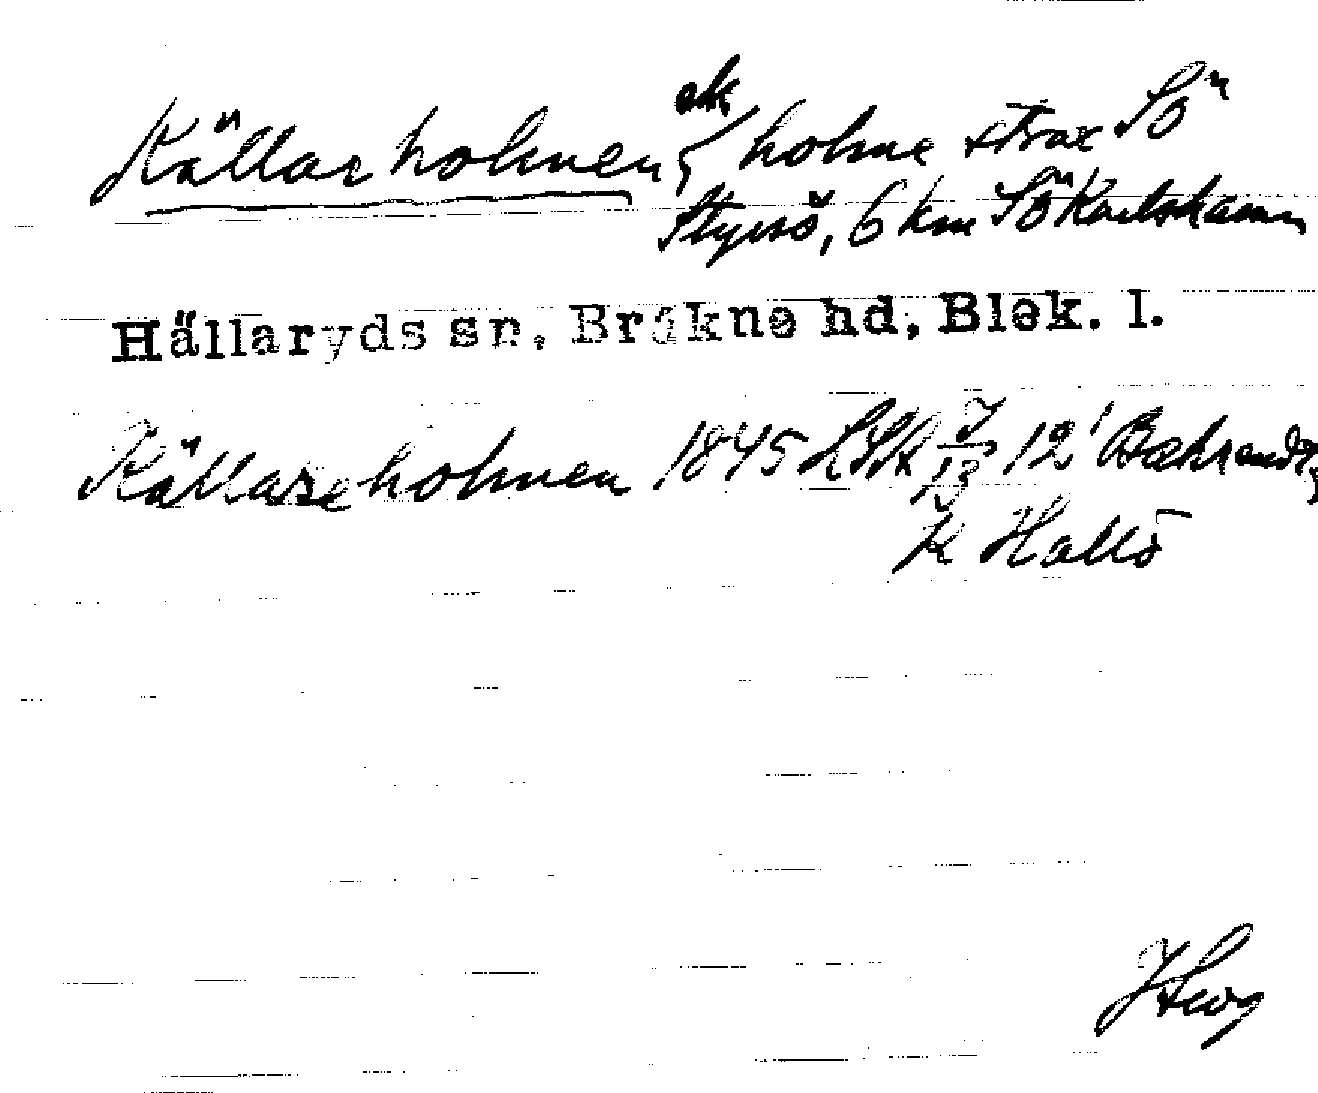 Källarholmen ek holme strax SÖ
Styrsö, 6 km SÖ Karlshamn
Hällaryds sn, Bräkne hd, Blek. l.
Källareholmen 1845 LSA 12
K Hallö